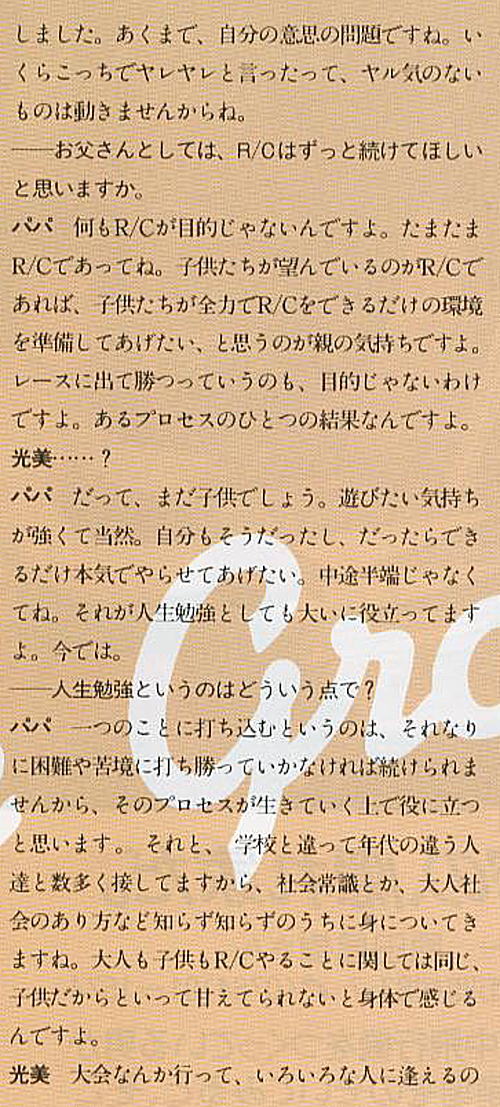 しました。あくまで、自分の意思の問題ですね。い
くらこっちでヤレヤレと言ったって、ヤル気のない
ものは動きませんからね。
──お父さんとしては、R/Cはずっと続けてほしい
と思いますか。
パパ　何もR/Cが目的じゃないんですよ。たまたま
R/Cであってね。子供たちが望んでいるのがR/Cで
あれば、子供たちが全力でR/Cをできるだけの環境
を準備してあげたい、と思うのが親の気持ちですよ。
レースに出て勝つっていうのも、目的じゃないわけ
ですよ。あるプロセスのひとつの結果なんですよ。
光美……？
パパ　だって、まだ子供でしょう。遊びたい気持ち
が強くて当然。自分もそうだったし、だったらでき
るだけ本気でやらせてあげたい。中途半端じゃなく
てね。それが人生勉強としても大いに役立ってます
よ。今では。
──人生勉強というのはどういう点で？
パパ　一つのことに打ち込むというのは、それなり
に困難や苦境に打ち勝っていかなければ続けられま
せんから、そのプロセスが生きていく上で役に立つ
と思います。それと、学校と違って年代の違う人
達と数多く接してますから、社会常識とか、大人社
会のあり方など知らず知らずのうちに身についてき
ますね。大人も子供もR/Cやることに関しては同じ、
子供だからといって甘えてられないと身体で感じる
んですよ。
光美　大会なんか行って、いろいろな人に逢えるの
Gro